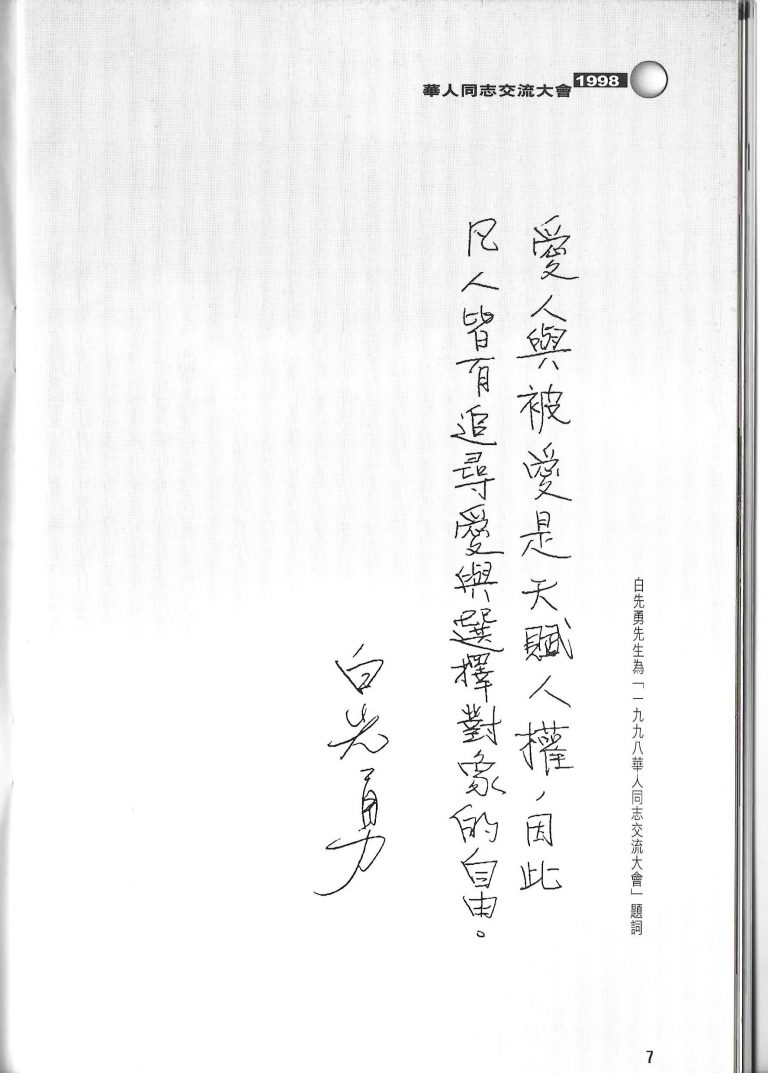 華人同志交流大會 1998
白先勇先生為「一九九八華人同志交流大會」題詞
愛人與被愛是天賦人權，因此
凡人皆有追尋愛與選擇對象的自由。
白先勇
7